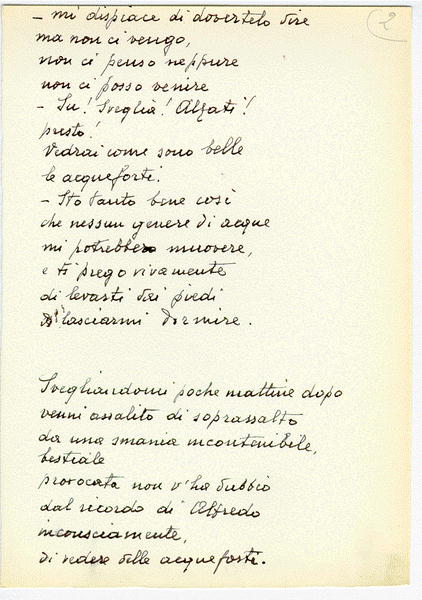 2
– mi dispiace di dovertelo dire
ma non ci vengo,
non ci penso neppure
non ci posso venire
– Su! Sveglia! Alzati!
presto!
Vedrai come sono belle
le acqueforti.
– Sto tanto bene così
che nessun genere di acque
mi potrebbe muovere,
e ti prego vivamente
di levarti dai piedi
di lasciarmi dormire.
Svegliandomi poche mattine dopo
venni assalito di soprassalto
da una smania incontenibile,
bestiale
provocata non v'ha dubbio
dal ricordo di Alfredo
inconsciamente,
di vedere delle acqueforti.